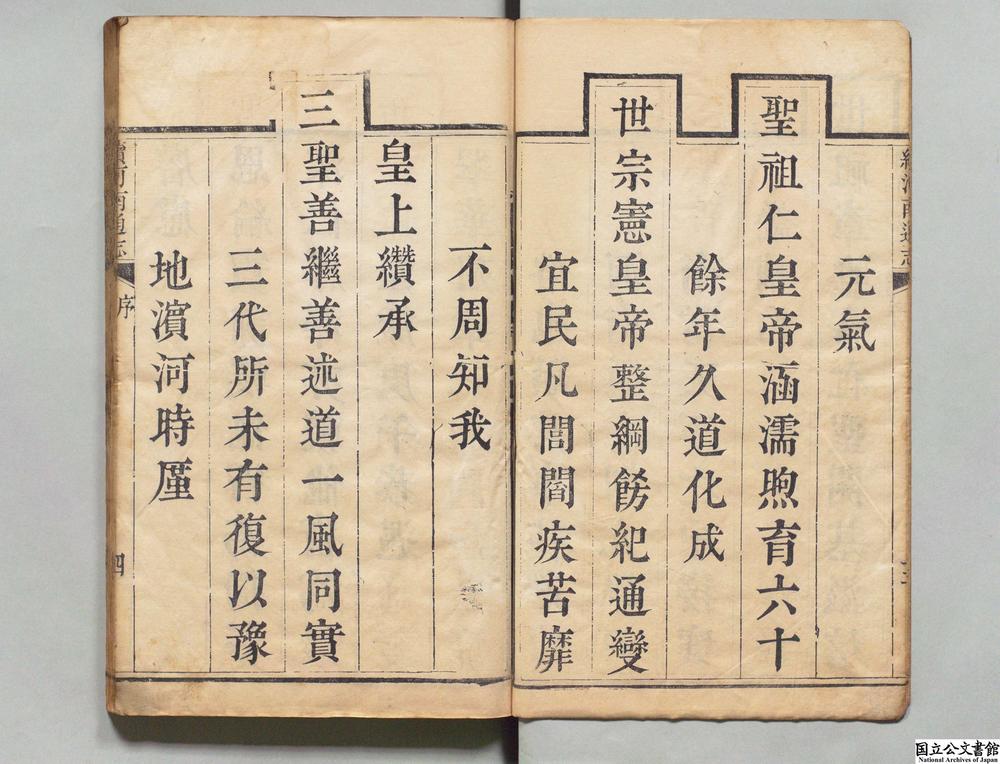 元氣
聖祖仁皇帝涵濡煦育六十
餘年久道化成
世宗憲皇帝整綱飭紀通變
宜民凡閭閻疾苦靡
不周知我
皇上纘承
三聖善繼善述道一風同實
三代所未有復以豫
地濵河時厪
續河南通志
序
四
国立公文書館
National Archives of Japan